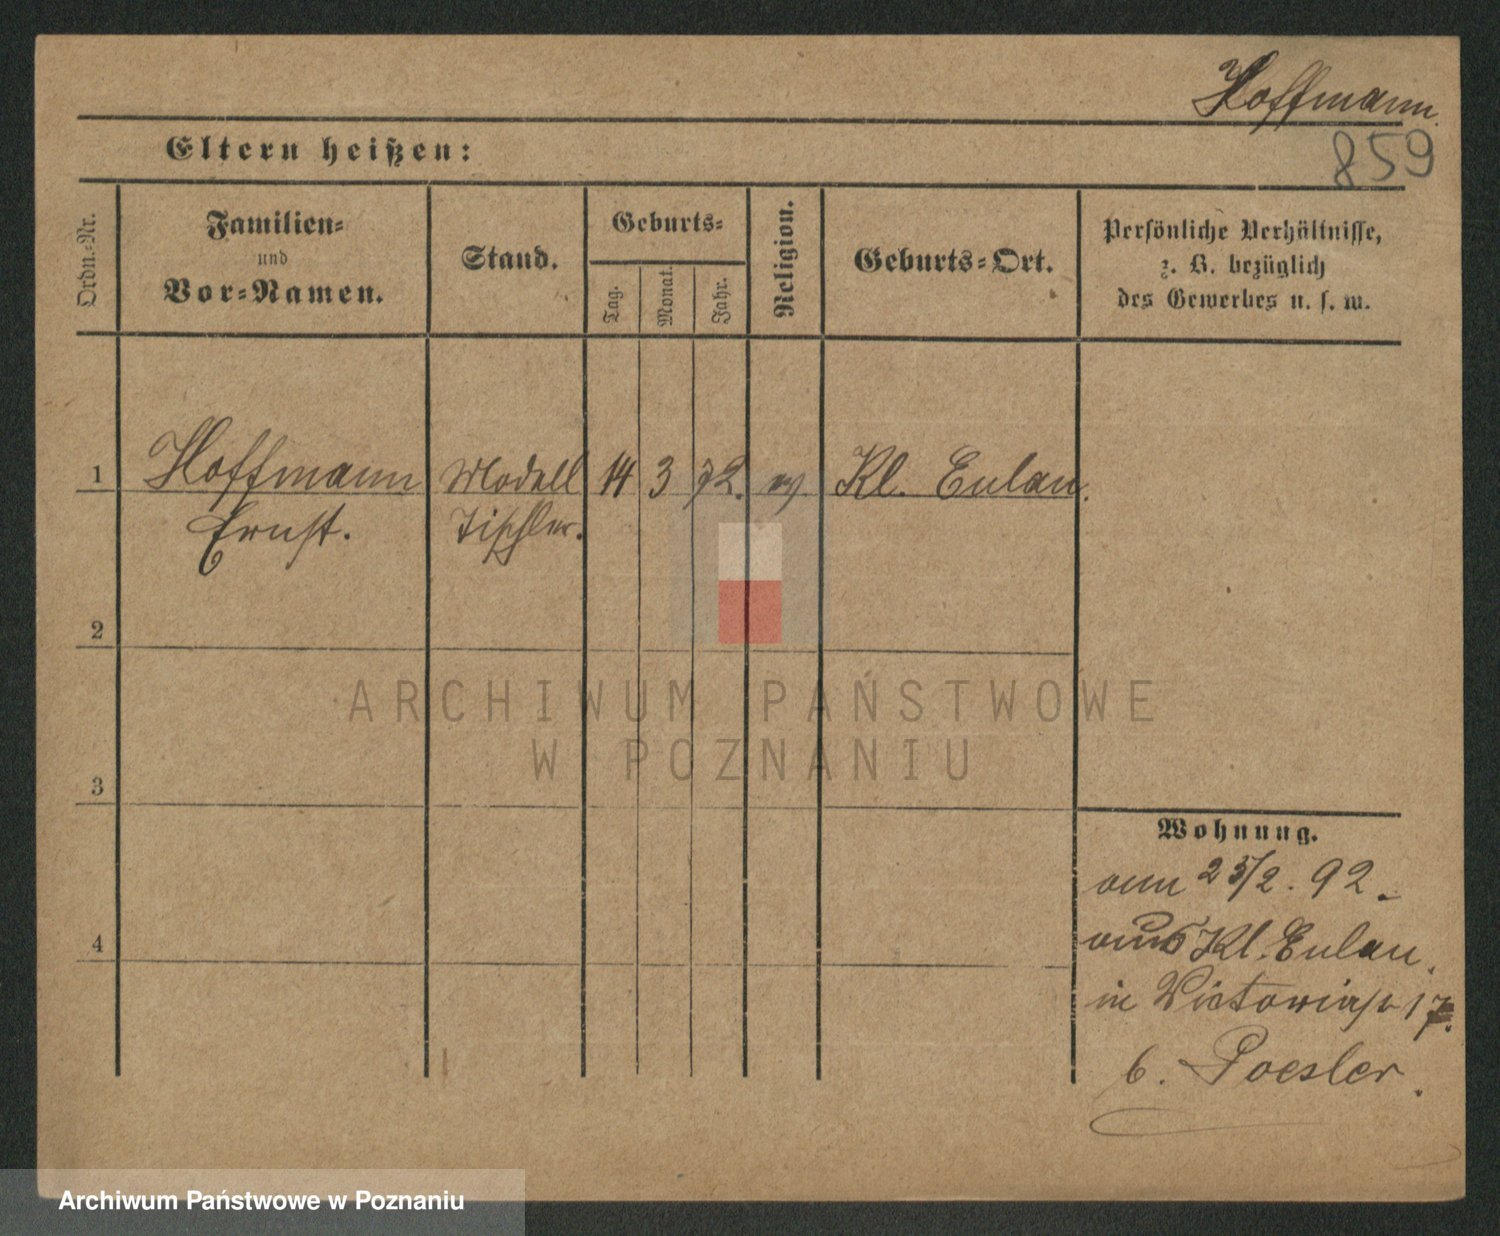 Hoffmann.
859
Eltern heißen:
Ordn.-Nr.
Familien-
und
Vor-Namen.
Stand.
Geburts-
Tag.
Monat.
Jahr.
Religion.
Geburts-Ort.
Persönliche Verhältnisse,
z. B. bezüglich
des Gewerbes u. s. w.
1 Hoffmann Modell 14 3 72. ev Kl. Eulau.
Ernst. Tischler.
2
ARCHIWUM PAŃSTWOWE
W POZNANIU
3
Wohnung.
am 25/2. 92.
aus Kl. Eulau.
in Victoriastr 17.
4
b. Poesler.
Archiwum Państwowe w Poznaniu